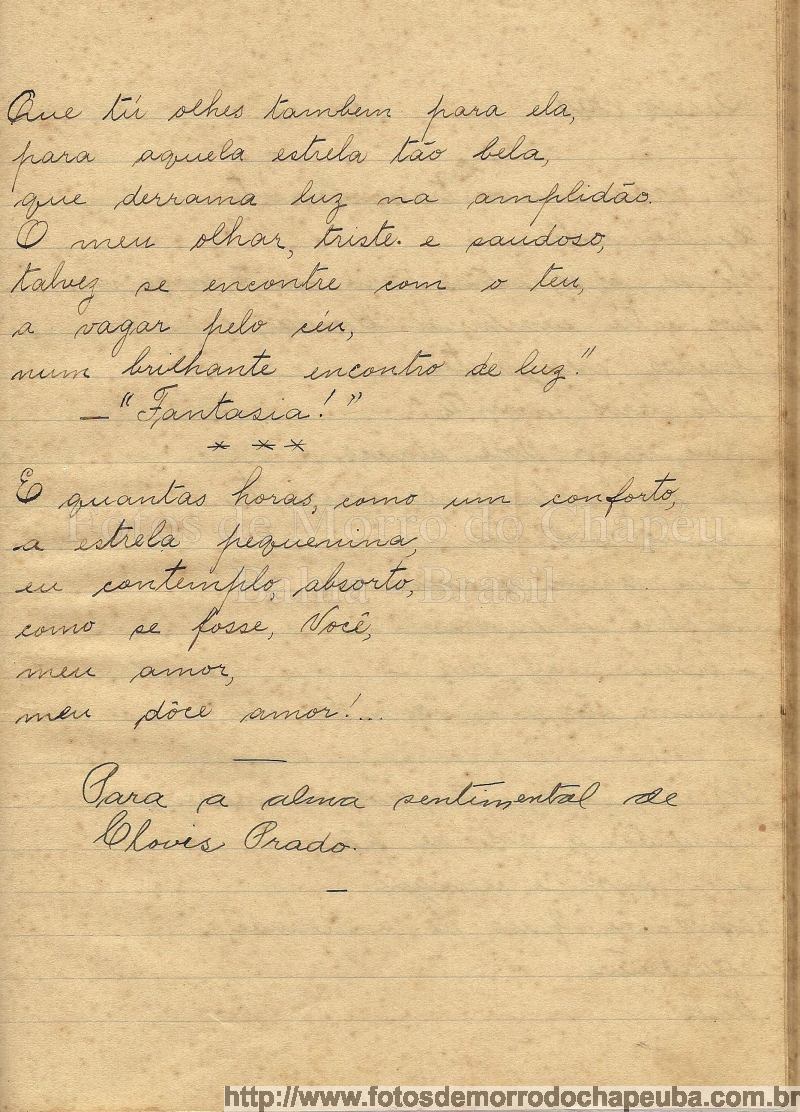 Que tú olhes tambem para ela,
para aquela estrela tão bela,
que derrama luz na amplidão.
O meu olhar, triste. e saudoso,
talvez se encontre com o teu,
a vagar pelo céu,
num brilhante encontro de luz."
— "Fantasia!"
* * *
E quantas horas, como um conforto,
a estrela pequenina,
eu contemplo, absorto,
como se fosse, Você,
meu amor,
meu dôce amor!...
Para a alma sentimental de
Clovis Prado.
Fotos de Morro do Chapéu
Bahia - Brasil
http://www.fotosdemorrodochapeuba.com.br